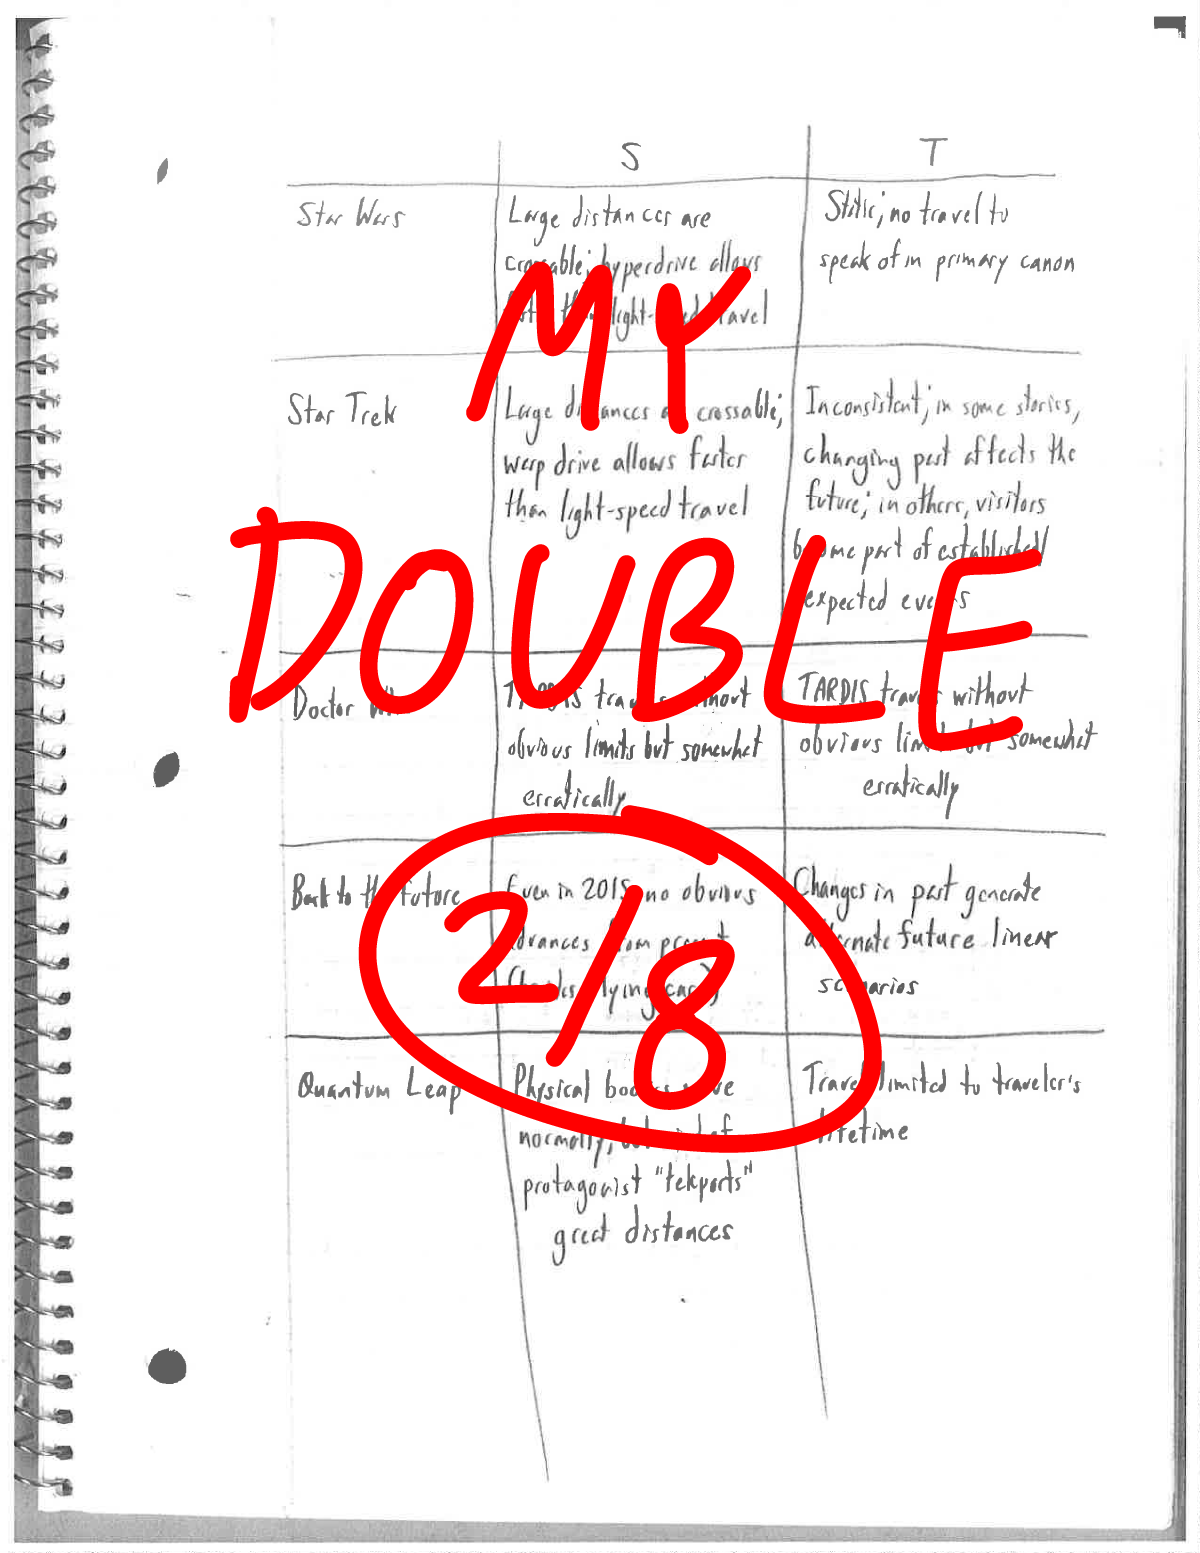 S T
Star Wars
Large distances are
crossable; hyperdrive allows
light-speed travel
Static; no travel to
speak of in primary canon
MY
Star Trek
Large distances crossable;
warp drive allows faster
than light-speed travel
Inconsistent; in some stories,
changing past affects the
future; in others, visitors
become part of established/
expected events
DOUBLE
Doctor Who
TARDIS travels without
obvious limits but somewhat
erratically
TARDIS travels without
obvious limits but somewhat
erratically
Back to the Future
Even in 2015, no obvious
advances from present
flying cars)
Changes in past generate
alternate future linear
scenarios
2/8
Quantum Leap
Physical bodies move
normally, but
protagonist "teleports"
great distances
Travel limited to traveler's
lifetime